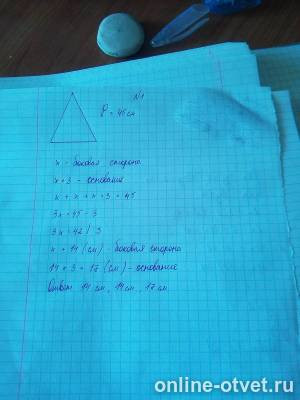 N1
P = 45 см
x - боковая сторона
x + 3 - основание
x + x + x + 3 = 45
3x = 45 - 3
3x = 42 / 3
x = 14 (см) - боковая сторона
14 + 3 = 17 (см) - основание
Ответ: 14 см, 14 см, 17 см
online-otvet.ru